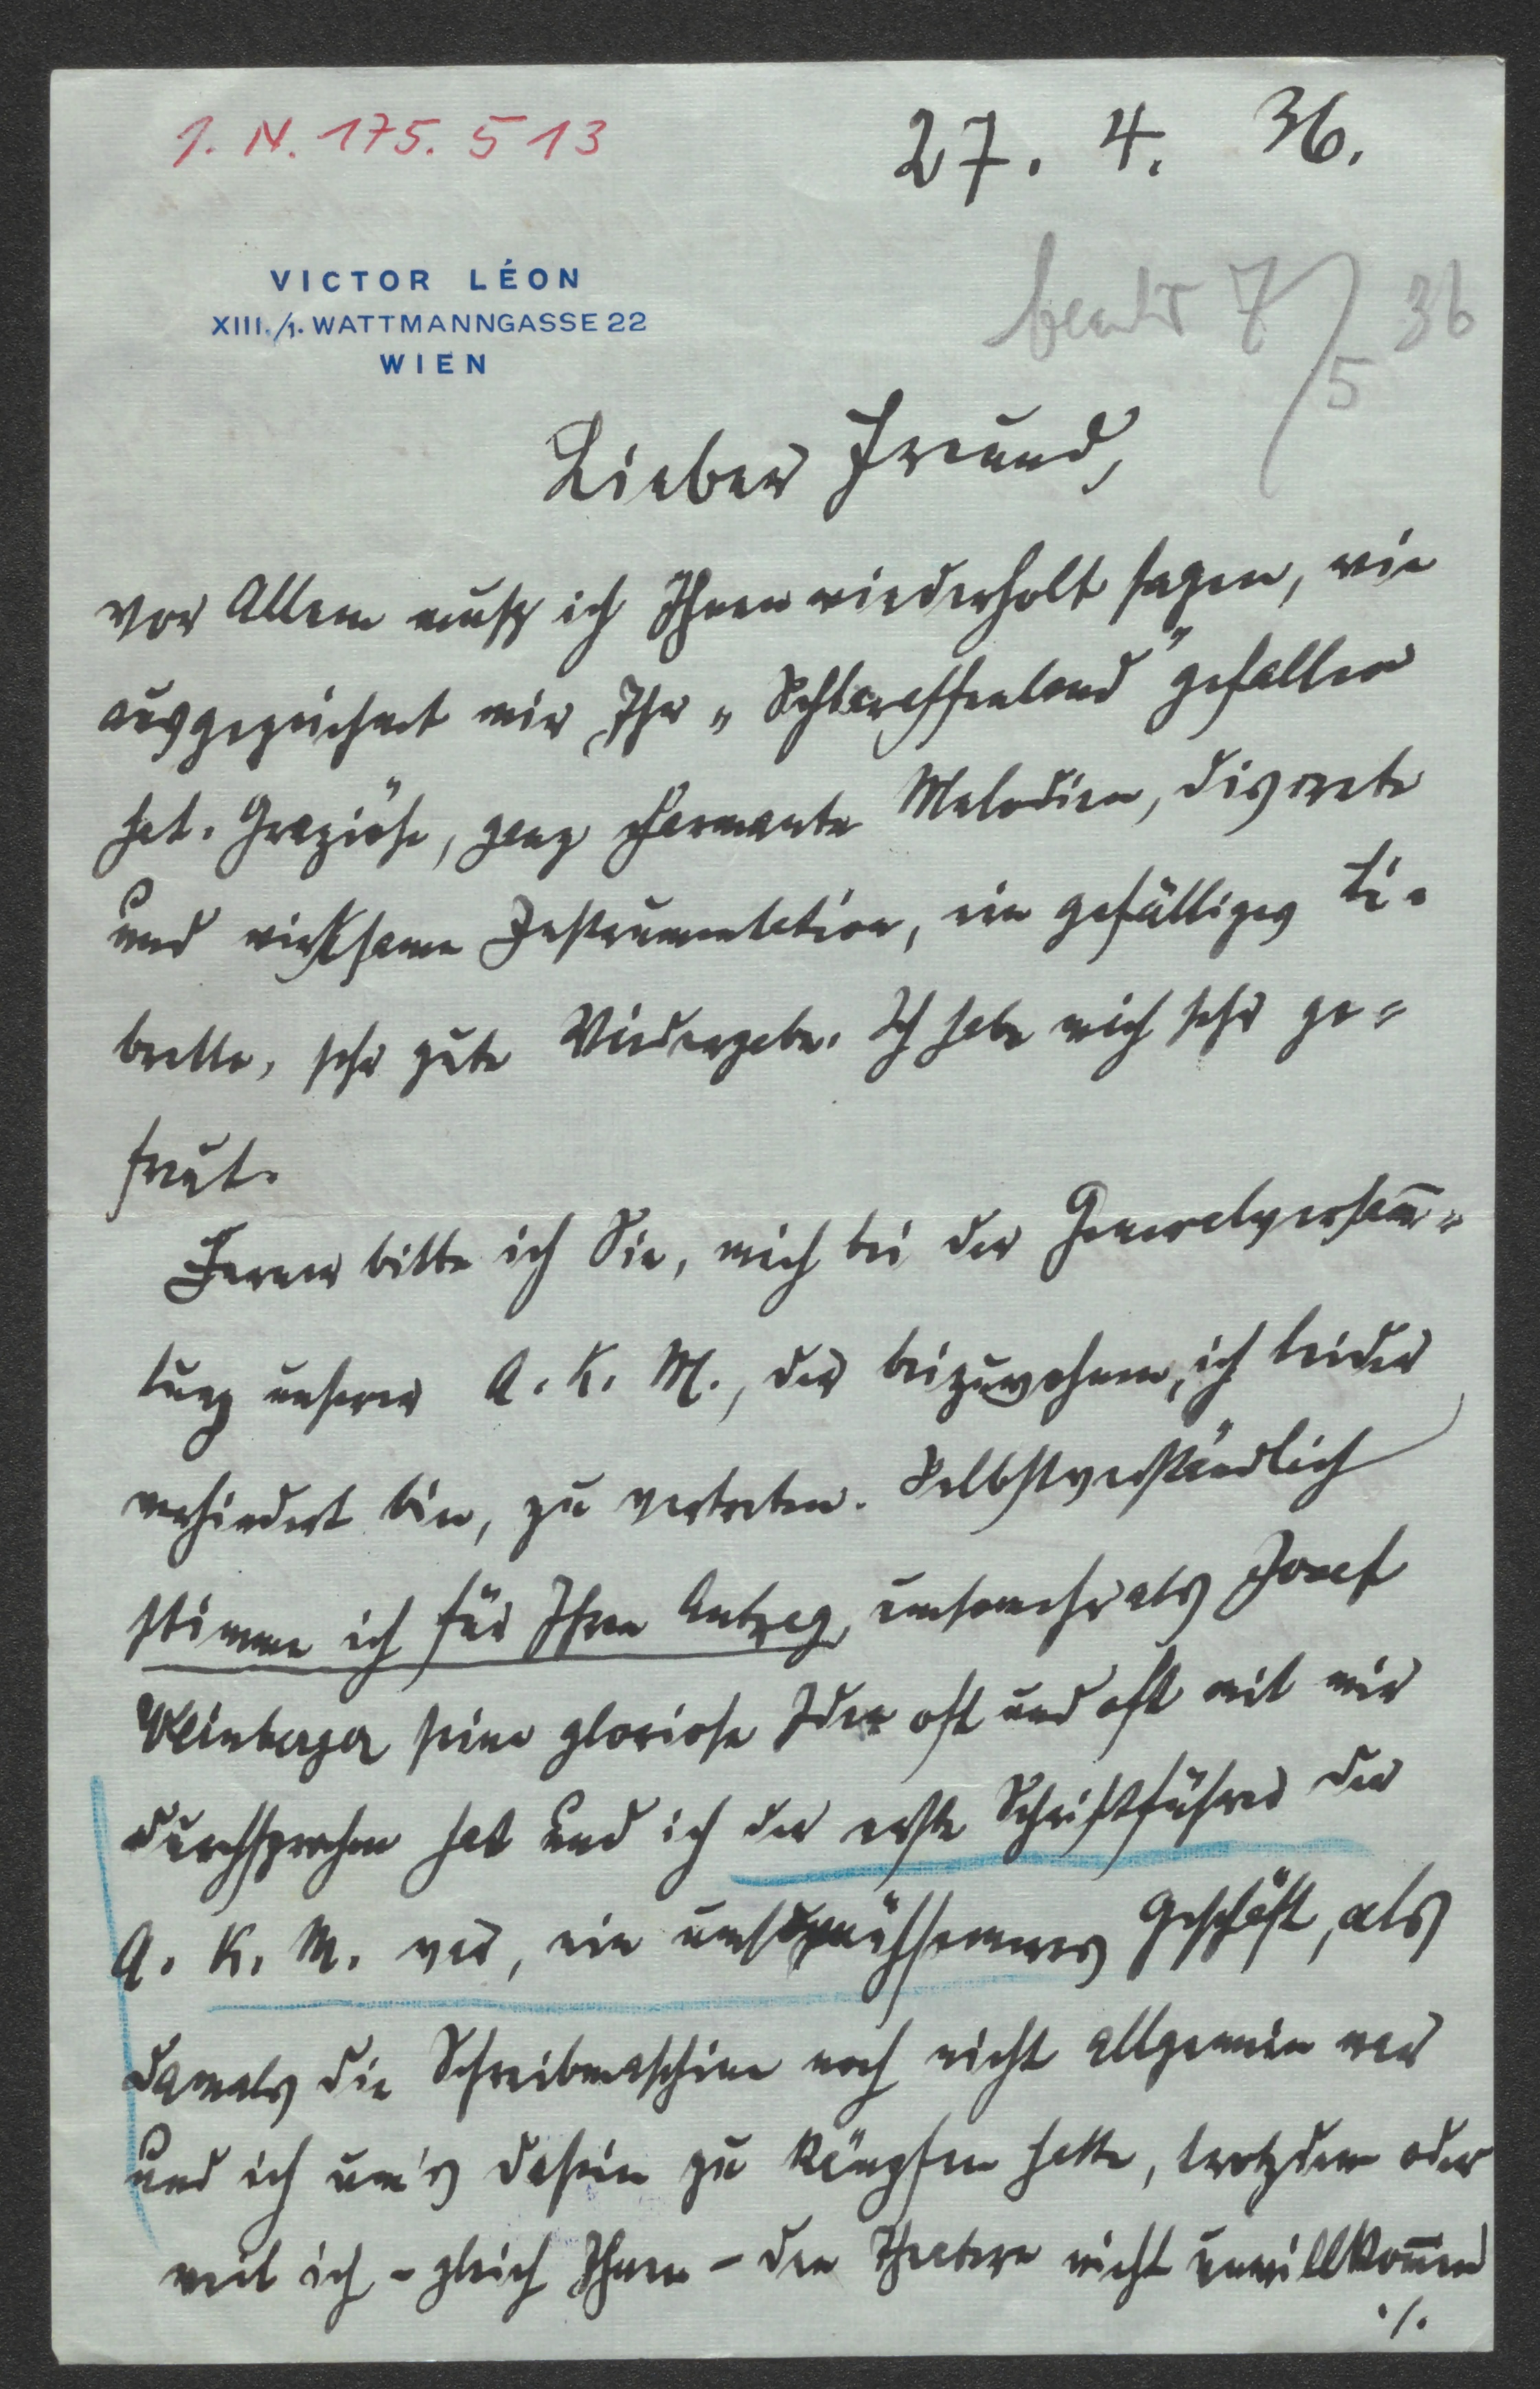 J. N. 175.513
27. 4. 36.
VICTOR LÉON
XIII./1. WATTMANNGASSE 22
WIEN
beantw 7/5 36
Lieber Freund,
vor Allem muss ich Ihnen wiederholt sagen, wie
ausgezeichnet mir Ihr „Schlaraffenland" gefallen
hat. Graziöse, ganz charmante Melodien, discrete
und wirksame Instrumentation, ein gefälliges Li-
bretto, sehr gute Wiedergabe. Ich habe mich sehr ge-
freut.
Ferner bitte ich Sie, mich bei der Generalversam̄-
lung unserer A. K. M., der beizuwohnen, ich leider
verhindert bin, zu vertreten. Selbstverständlich
stimme ich für Ihren Antrag, umsomehr als Josef
Weinberger seine gloriose Idee oft und oft mit mir
durchsprochen hat und ich der erste Schriftführer der
A. K. M. war, ein umso mühsameres Geschäft, als
damals die Schreibmaschine noch nicht allgemein war
und ich um's Dasein zu kämpfen hatte, trotzdem oder
weil ich - gleich Ihnen - den Theatern nicht unwillkom̄en
./.